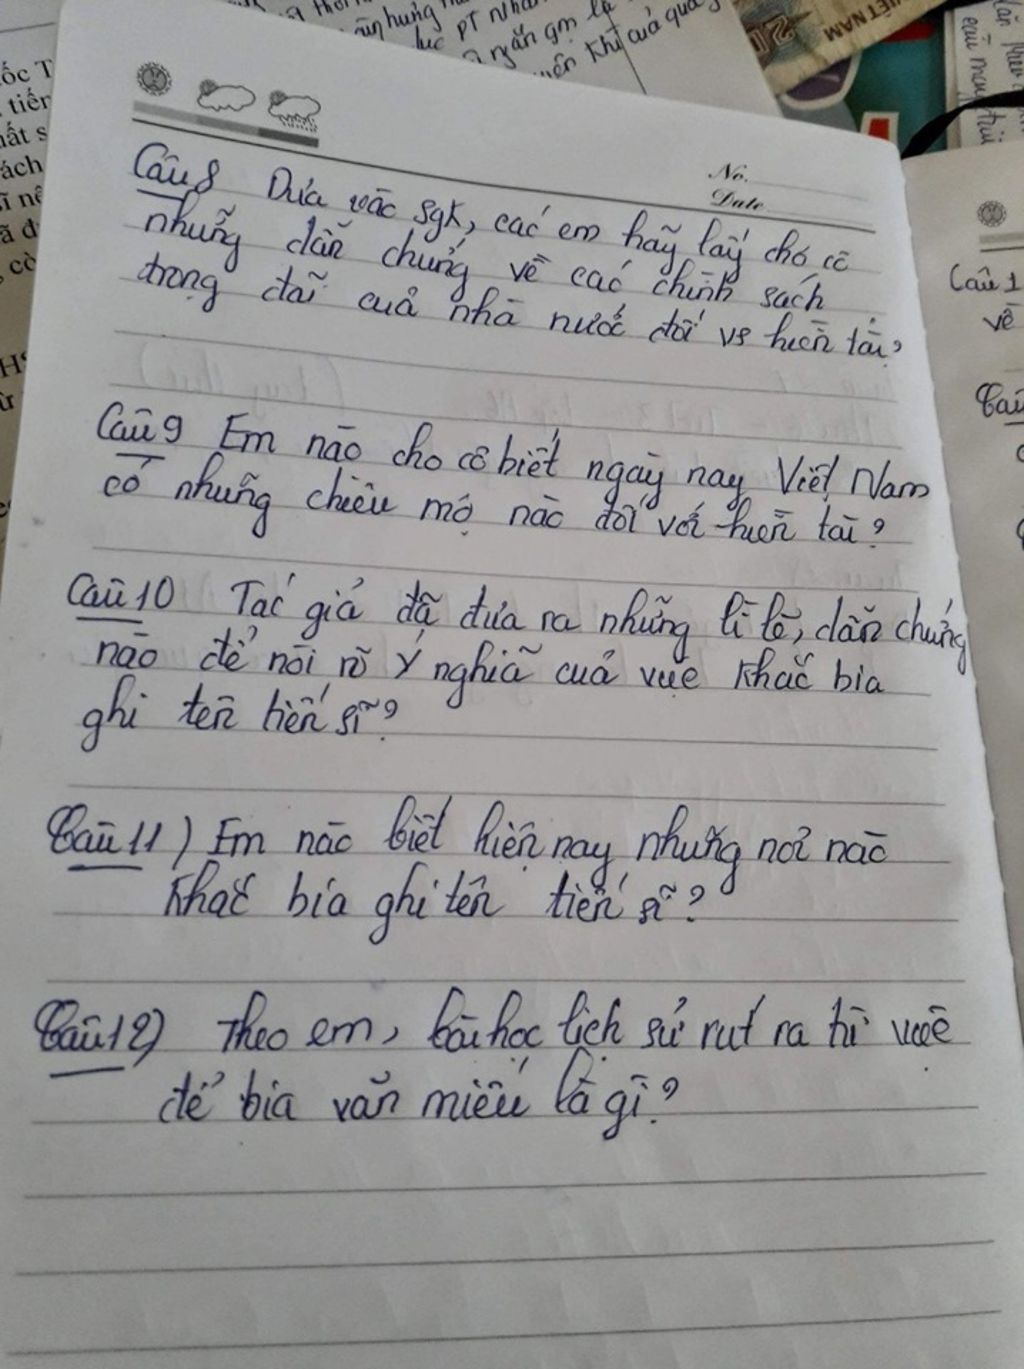 No.
Date
Câu 8 Dựa vào sgk, các em hãy lấy cho cô
những dẫn chứng về các chính sách
trọng đãi của nhà nước đối vs hiền tài?
Câu 9 Em nào cho cô biết ngày nay Việt Nam
có những chiêu mộ nào đối với hiền tài?
Câu 10 Tác giả đã đưa ra những lí lẽ, dẫn chứng
nào để nói rõ ý nghĩa của việc khắc bia
ghi tên tiến sĩ?
Câu 11) Em nào biết hiện nay những nơi nào
khắc bia ghi tên tiến sĩ?
Câu 12) Theo em, bài học lịch sử rút ra từ việc
đề bia văn miếu là gì?
Câu 1
về
VIỆT NAM
khí của quốc